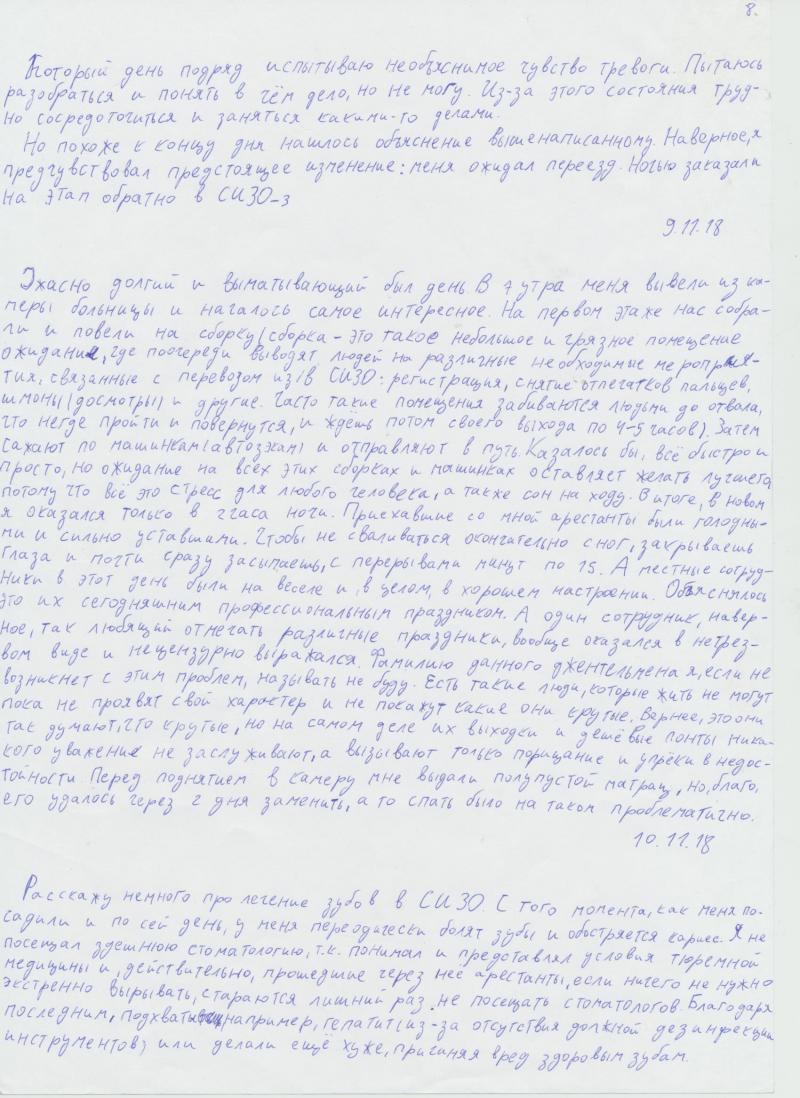 8.
Который день подряд испытываю необъяснимое чувство тревоги. Пытаюсь
разобраться и понять в чём дело, но не могу. Из-за этого состояния труд-
но сосредоточиться и заняться какими-то делами.
Но похоже к концу дня нашлось объяснение вышенаписанному. Наверное, я
предчувствовал предстоящее изменение: меня ожидал переезд. Ночью заказали
на этап обратно в СИЗО-3
9.11.18
Ужасно долгий и выматывающий был день В 7 утра меня вывели из ка-
меры больницы и началось самое интересное. На первом этаже нас собра-
ли и повели на сборку (сборка - это такое небольшое и грязное помещение
ожидание, где поочереди выводят людей на различные необходимые мероприя-
тия, связанные с перевозом из/в СИЗО: регистрация, снятие отпечатков пальцев,
шмоны (досмотры) и другие. Часто такие помещения забиваются людьми до отвала,
что негде пройти и повернутся, и ждёшь потом своего выхода по 4-5 часов). Затем
сажают по машинкам (автозэкам) и отправляют в путь. Казалось бы, всё быстро и
просто, но ожидание на всех этих сборках и машинках оставляет желать лучшего,
потому что всё это стресс для любого человека, а также сон на ходу. В итоге, в новом
я оказался только в 2 часа ночи. Приехавшие со мной арестанты были голодны-
ми и сильно уставшими. Чтобы не сваливаться окончательно с ног, закрываешь
глаза и почти сразу засыпаешь, с перерывами минут по 15. А местные сотруд-
ники в этот день были на веселе и, в целом, в хорошем настроении. Объяснялось
это их сегодняшним профессиональным праздником. А один сотрудник, навер-
ное, так любящий отмечать различные праздники, вообще оказался в нетрез-
вом виде и нецензурно выражался. Фамилию данного джентельмена я, если не
возникнет с этим проблем, называть не буду. Есть такие люди, которые жить не могут
пока не проявят свой характер и не покажут какие они крутые. Вернее, это они
так думают, что крутые, но на самом деле их выходки и дешёвые понты ника-
кого уважение не заслуживают, а вызывают только порицание и упрёки в недос-
тойности Перед поднятием в камеру мне выдали полупустой матрац, но, благо,
его удалось через 2 дня заменить, а то спать было на таком проблематично.
10.11.18
Расскажу немного про лечение зубов в СИЗО. С того момента, как меня по-
садили и по сей день, у меня переодически болят зубы и обостряется кариес. Я не
посещал здешнюю стоматологию, т.к. понимал и представлял условия тюремной
медицины и, действительно, прошедшие через неё арестанты, если ничего не нужно
экстренно вырывать, стараются лишний раз не посещать стоматологов. Благодаря
последним, например, гепатит (из-за отсутствия должной дезинфекции
инструментов) или делали ещё хуже, причиняя вред здоровым зубам.